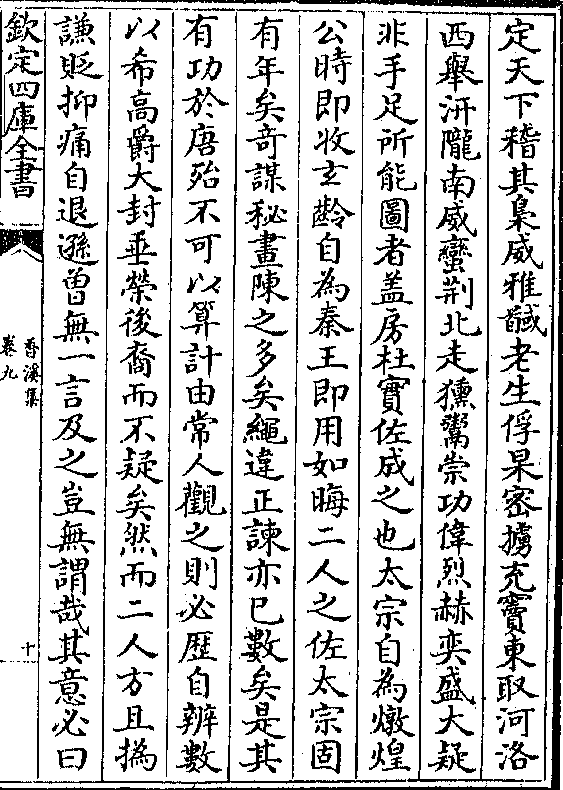 定天下稽其梟威雅馘老生俘杲密擄充竇東取河洛
西舉汧隴南威蠻荆北走獯鬻崇功偉烈赫奕盛大疑
非手足所能圖者盖房杜實佐成之也太宗自為燉煌
公時即收玄齡自為秦王即用如晦二人之佐太宗固
有年矣奇謀秘畫陳之多矣繩違正諫亦已數矣是其
有功於唐殆不可以算計由常人觀之則必歴自辨數
以希高爵大封垂榮後裔而不疑矣然而二人方且撝
謙貶抑痛自退遜曾無一言及之豈無謂哉其意必曰
欽定四庫全書
香溪集
卷九
十